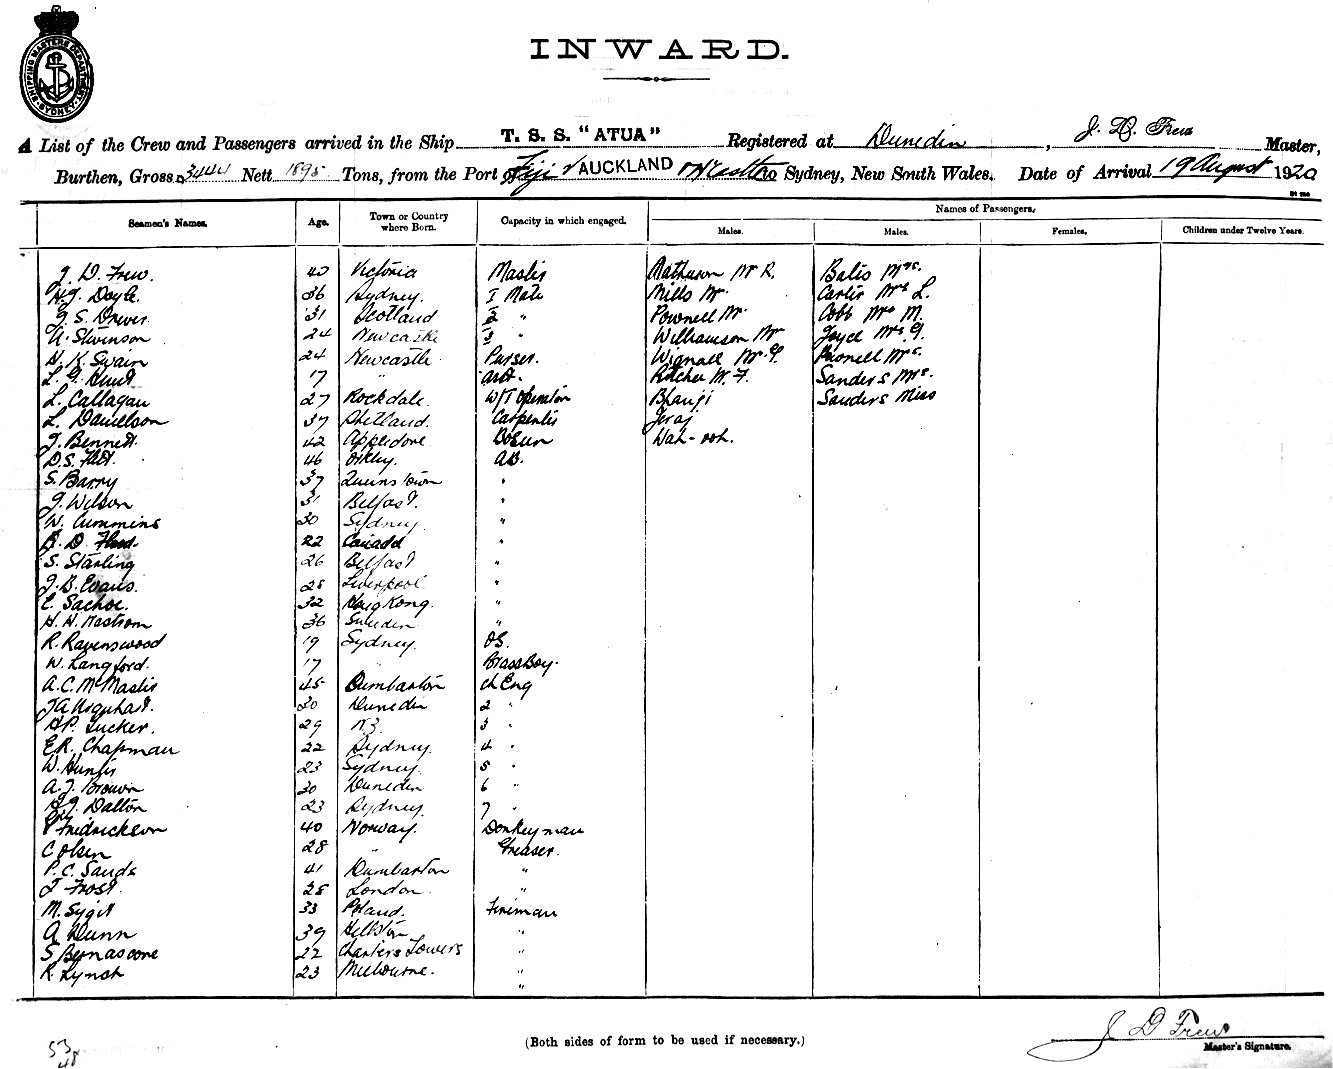 SHIPPING MASTERS DEPARTMENT SYDNEY
INWARD.
A List of the Crew and Passengers arrived in the Ship T. S. S. "ATUA" Registered at Dunedin, J. D. Frew Master,
Burthen, Gross 3444 Nett 1895 Tons, from the Port of Fiji AUCKLAND to Sydney, New South Wales. Date of Arrival 19 August 1920
Seamen's Names. Age. Town or Country where Born. Capacity in which engaged. Names of Passengers,
Males. Males. Females. Children under Twelve Years.
J. D. Frew. 40 Victoria Master Mathuson Mr R. Batis Mrs.
H.J. Doyle. 36 Sydney. I Mate Mills Mr Carter Mrs L.
J. S. Drever 31 Scotland 2 " Pownell Mr. Cobb Mrs M.
A. Stevinson 24 Newcastle 3 " Williamson Mr Joyce Mrs G.
H. K. Swain 24 Newcastle Purser. Wignall Mr. G. Pownell Mrs.
L. G. Hunt 17 " Asst. Ritcher M. F. Sanders Mrs.
L. Callagan 27 Rockdale. W/T Operator Bhanji Sanders Miss
L. Danielson 37 Shetland. Carpenter Jeraj
J. Bennett. 42 Appledore Bosun Wah-ooh.
D.S. Flett. 46 Orkney. AB.
S. Barry 37 Queenstown "
J. Wilson 31 Belfast. "
W. Cummins 30 Sydney "
D. Flood. 22 Canada "
S. Starling 26 Belfast "
J. B. Evans. 28 Liverpool "
E. Sachoe. 32 Hong Kong. "
H. H. Nastrom 36 Sweden "
R. Ravenswood 19 Sydney. OS.
W. Langford. 17 " Brass Boy.
A. C. McMaster 45 Dumbarton Ch Eng
J A Urquhart. 30 Dunedin 2 "
H P. Tucker. 29 N.Z. 3 "
E.R. Chapman 22 Sydney. 4 "
W. Hunter 23 Sydney. 5 "
A. J. Brown 30 Dunedin 6 "
H. J. Dalton 23 Sydney. 7 "
Fredrickson 40 Norway. Donkeyman
C Olsen 28 " Greaser.
P. C. Sands 41 Dumbarton "
J Frost. 28 London. "
M. Sygit 33 Poland. Fireman
A Dunn 39 "
S Bernascone 22 Charters Towers "
R. Lynch 23 Melbourne. "
"
(Both sides of form to be used if necessary.)
J D Frew
Master's Signature.
53
48